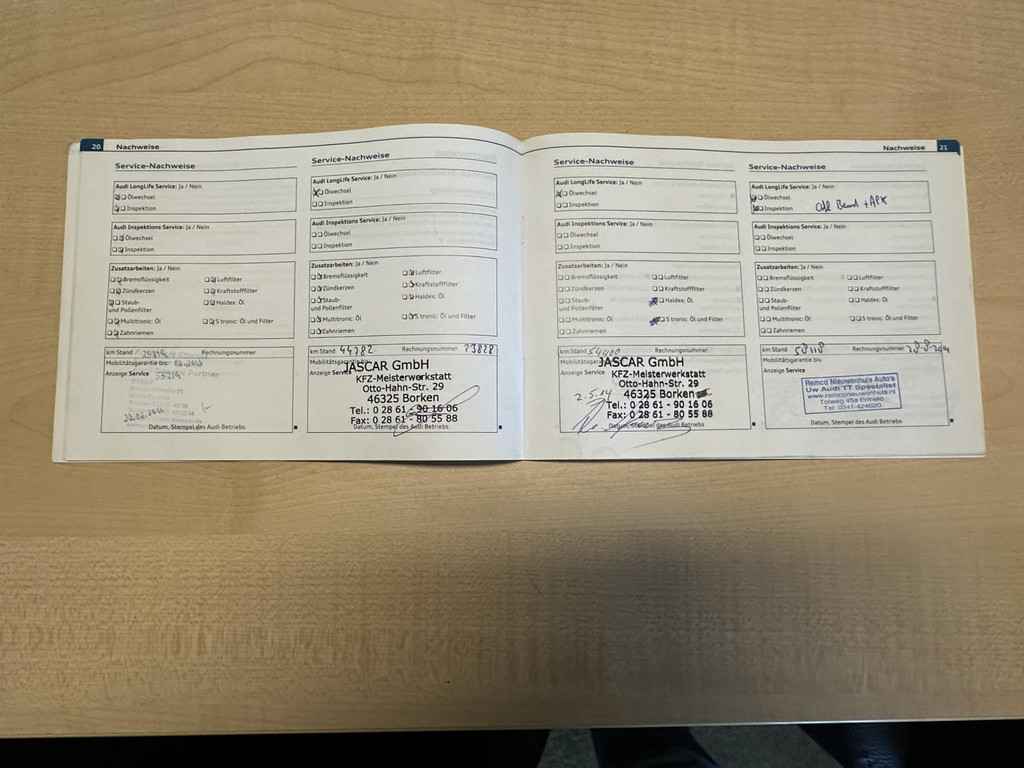 20 Nachweise
Service-Nachweise
Audi LongLife Service: Ja / Nein
Ölwechsel
Inspektion
Audi Inspektions Service: Ja / Nein
Ölwechsel
Inspektion
Zusatzarbeiten: Ja / Nein
Bremsflüssigkeit Luftfilter
Zündkerzen Kraftstofffilter
Staub- Haldex: Öl
und Pollenfilter
Multitronic: Öl S tronic: Öl und Filter
Zahnriemen
km Stand Rechnungsnummer
Mobilitätsgarantie bis:
Anzeige Service
Datum, Stempel des Audi Betriebs
Service-Nachweise
Audi LongLife Service: Ja / Nein
Ölwechsel
Inspektion
Audi Inspektions Service: Ja / Nein
Ölwechsel
Inspektion
Zusatzarbeiten: Ja / Nein
Bremsflüssigkeit Luftfilter
Zündkerzen Kraftstofffilter
Staub- Haldex: Öl
und Pollenfilter
Multitronic: Öl S tronic: Öl und Filter
Zahnriemen
km Stand 44782 Rechnungsnummer 73828
Mobilitätsgarantie bis
Anzeige Service
JASCAR GmbH
KFZ-Meisterwerkstatt
Otto-Hahn-Str. 29
46325 Borken
Tel.: 0 28 61 - 90 16 06
Fax: 0 28 61 - 80 55 88
Datum, Stempel des Audi Betriebs
Nachweise 21
Service-Nachweise
Audi LongLife Service: Ja / Nein
Ölwechsel
Inspektion
Audi Inspektions Service: Ja / Nein
Ölwechsel
Inspektion
Zusatzarbeiten: Ja / Nein
Bremsflüssigkeit Luftfilter
Zündkerzen Kraftstofffilter
Staub- Haldex: Öl
und Pollenfilter
Multitronic: Öl S tronic: Öl und Filter
Zahnriemen
km Stand Rechnungsnummer
Mobilitätsgarantie
Anzeige Service
JASCAR GmbH
KFZ-Meisterwerkstatt
Otto-Hahn-Str. 29
46325 Borken
Tel.: 0 28 61 - 90 16 06
Fax: 0 28 61 - 80 55 88
2.5.14
Datum, Stempel des Audi Betriebs
Service-Nachweise
Audi LongLife Service: Ja / Nein
Ölwechsel
Inspektion
Audi Inspektions Service: Ja / Nein
Ölwechsel
Inspektion
Zusatzarbeiten: Ja / Nein
Bremsflüssigkeit Luftfilter
Zündkerzen Kraftstofffilter
Staub- Haldex: Öl
und Pollenfilter
Multitronic: Öl S tronic: Öl und Filter
Zahnriemen
km Stand 58118 Rechnungsnummer
Mobilitätsgarantie bis:
Anzeige Service
Remco Nieuwenhuis Auto's
Uw Audi TT Specialist
www.remconieuwenhuis.nl
Tolweg 45a Ermelo
Tel: 0341-424020
Datum, Stempel des Audi Betriebs